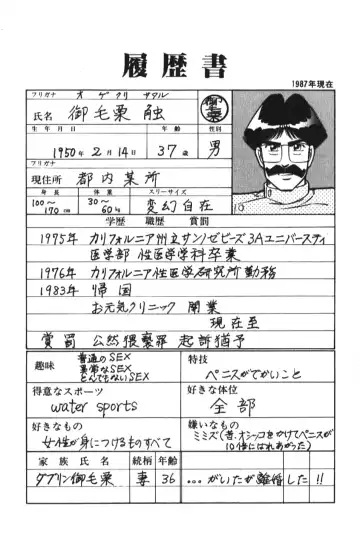 履歴書
1987年現在
フリガナ オゲクリ サワル
氏名 御毛栗 触
生年月日 年齢 性別
1950年2月14日 37才 男
フリガナ
現住所 都内某所
身長 体重 スリーサイズ
100〜170cm 30〜60kg 変幻自在
学歴 職歴 賞罰
1975年 カリフォルニア州立サンノゼビーズ3Aユニバースティ
医学部 性医学学科卒業
1976年 カリフォルニア性医学研究所勤務
1983年 帰国
お元気クリニック 開業
現在至
賞罰 公然猥褻罪 起訴猶予
趣味 普通のSEX
異常なSEX
とんでもないSEX
特技
ペニスがでかいこと
得意なスポーツ
water sports
好きな体位
全部
好きなもの
女性が身につけるものすべて
嫌いなもの
ミミズ(昔、オシッコをかけてペニスが
10倍にはれあがった)
家族氏名 続柄 年齢
ダブリン御毛栗 妻 36 …がいたが離婚した!!